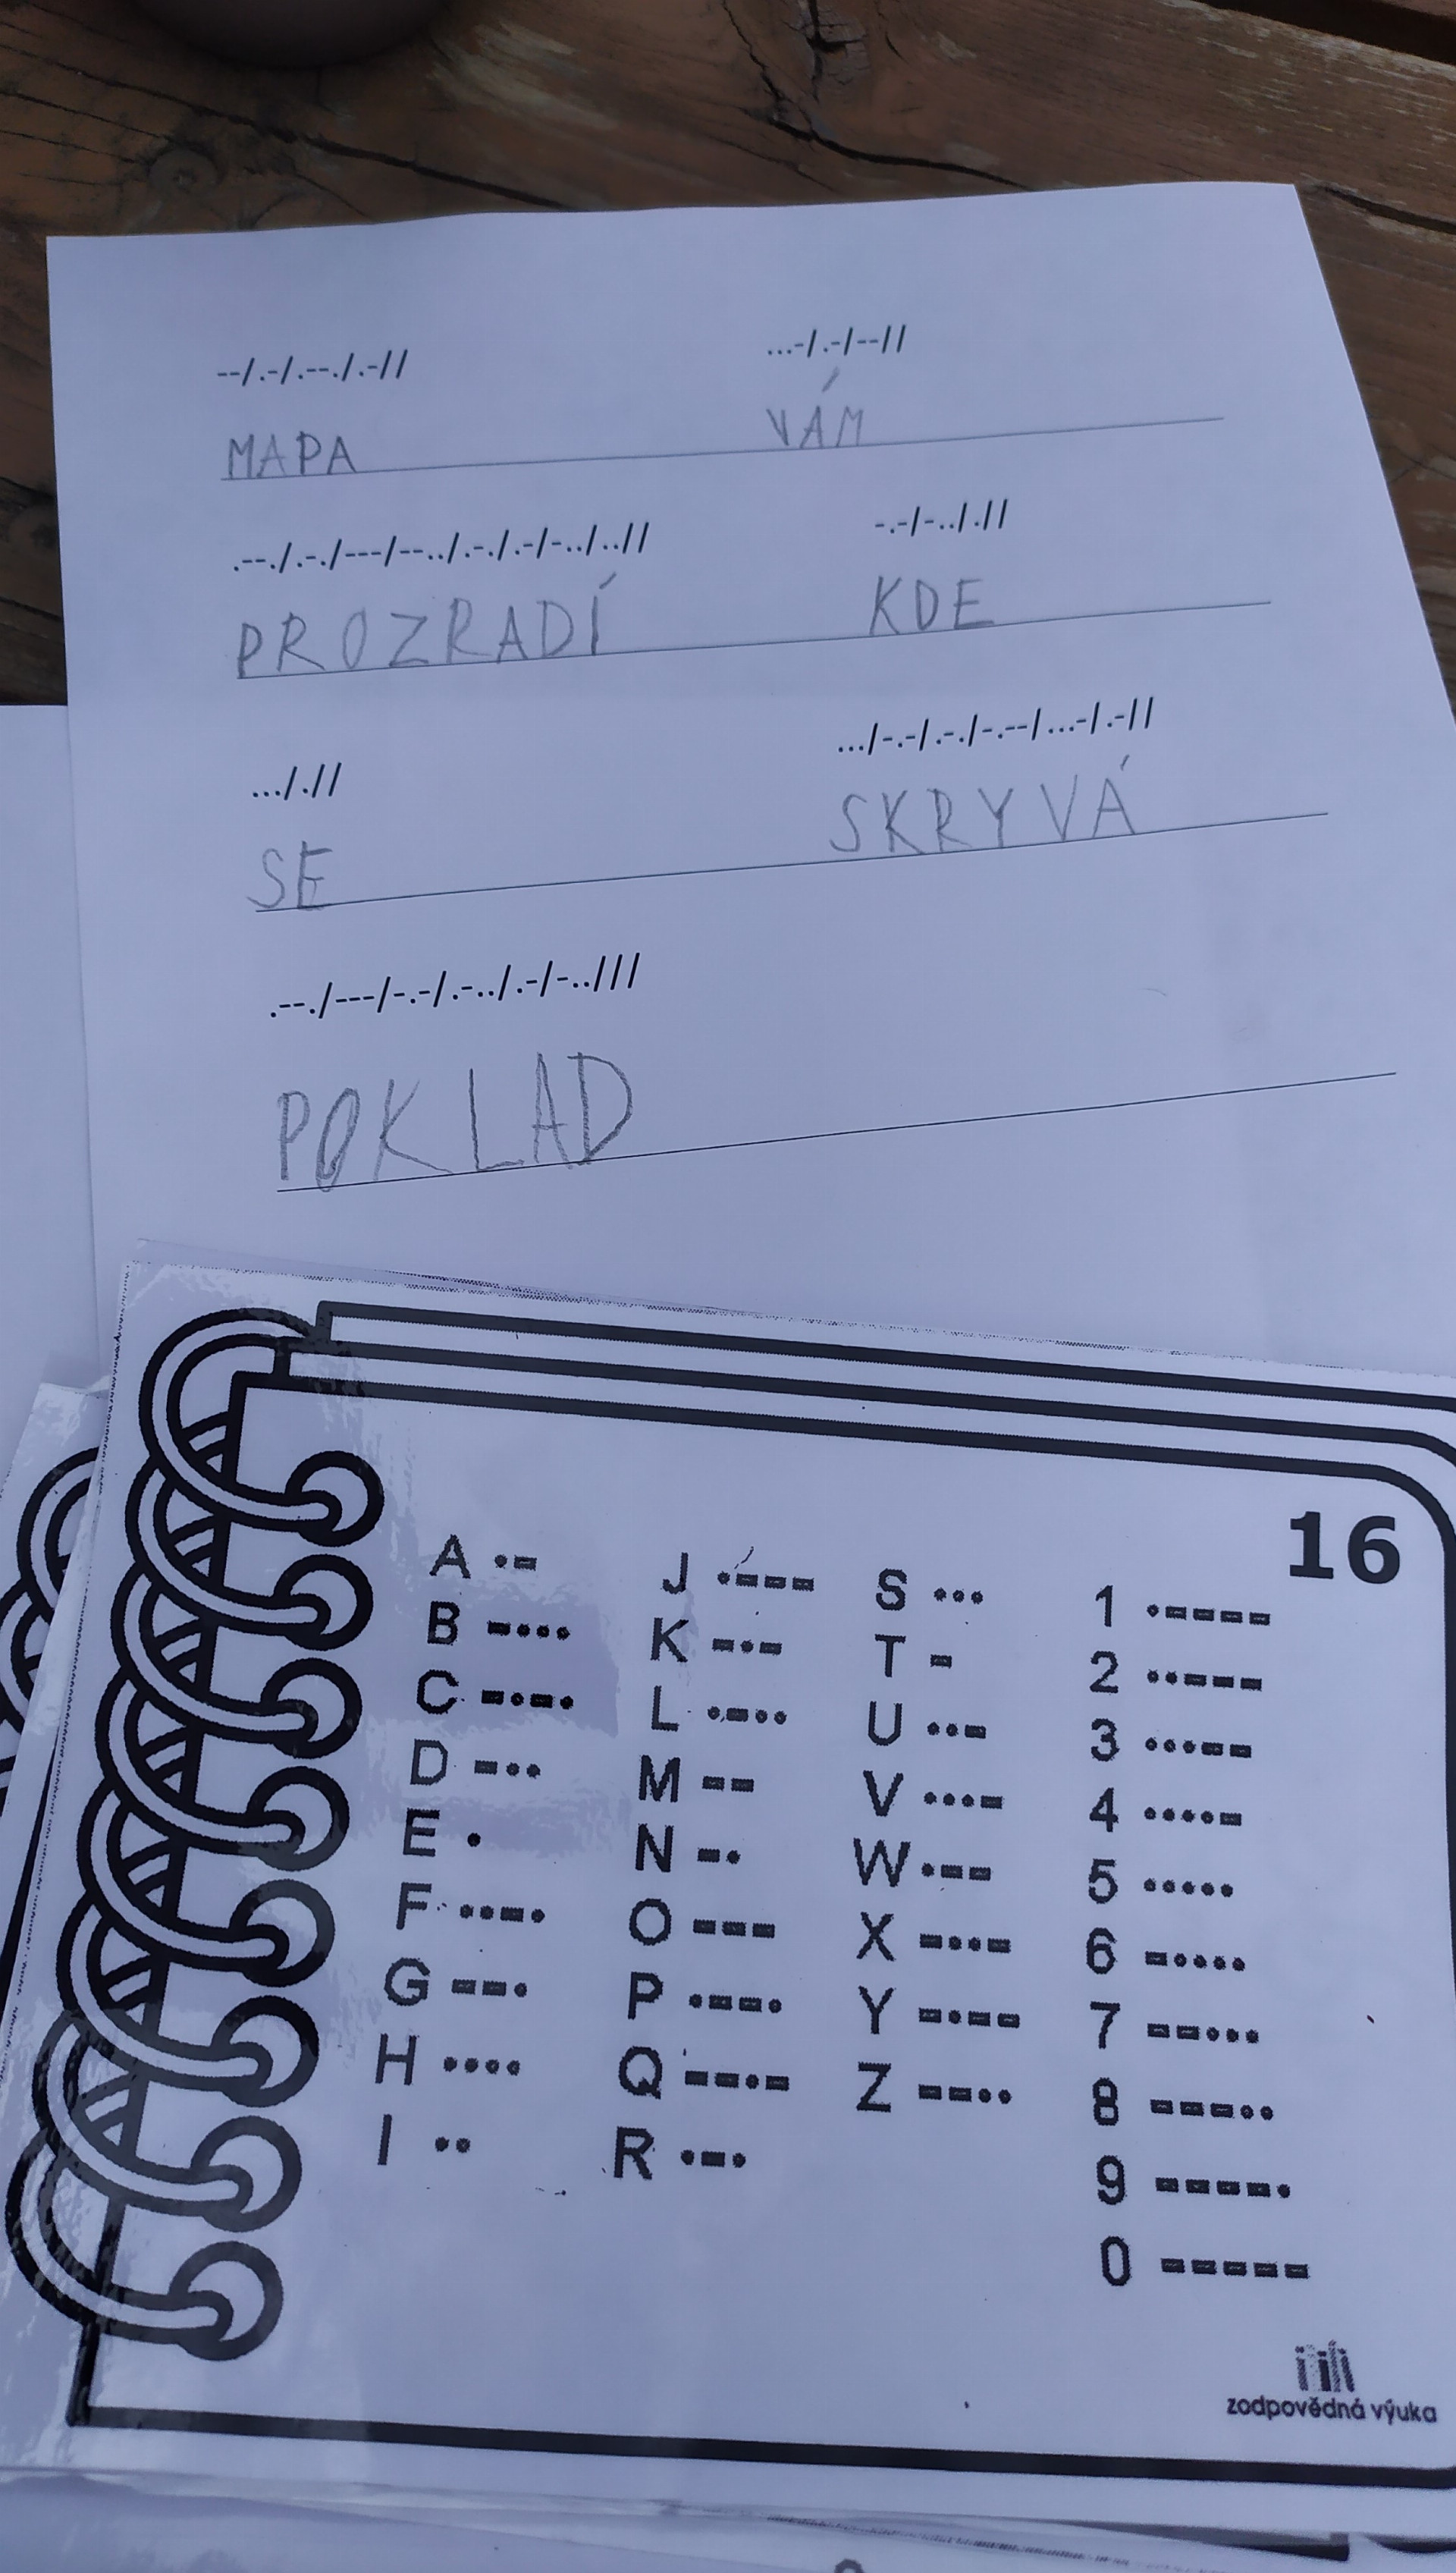 --/.-/.--./.-// ...-/.-/--//
MAPA VÁM
.--./.-./---/--../.-./.-/-../..// -.-/-.././/
PROZRADÍ KDE
.../.// .../-.-/.-./-.--/...-/.-//
SE SKRÝVÁ
.--./---/-.-/.-../.-/-..///
POKLAD
16
A .- J .--- S ... 1 .----
B -... K -.- T - 2 ..---
C -.-. L .-.. U ..- 3 ...--
D -.. M -- V ...- 4 ....-
E . N -. W .-- 5 .....
F ..-. O --- X -..- 6 -....
G --. P .--. Y -.-- 7 --...
H .... Q --.- Z --.. 8 ---..
I .. R .-. 9 ----.
0 -----
zodpovědná výuka